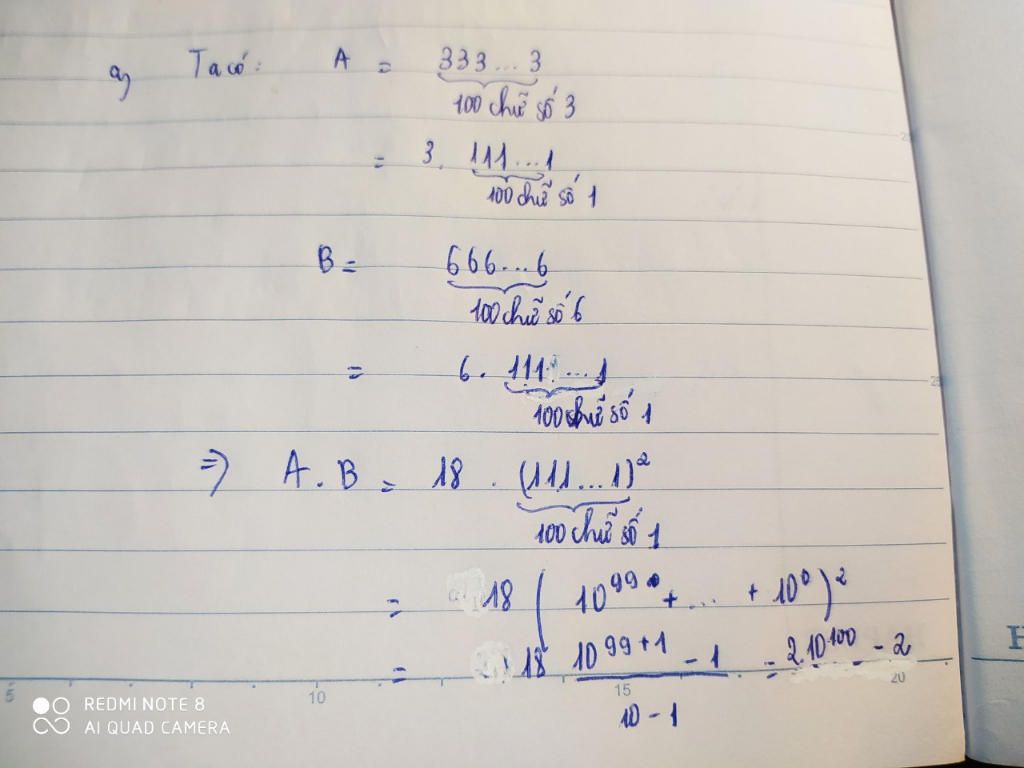 a) Ta có: A = 333...3
100 chữ số 3
= 3. 111...1
100 chữ số 1
B = 666...6
100 chữ số 6
= 6. 111...1
100 chữ số 1
=> A.B = 18 . (111...1)²
100 chữ số 1
= 18 (10⁹⁹ + ... + 10⁰)²
= 18 (10⁹⁹⁺¹ - 1)/(10 - 1) = 2.10¹⁰⁰ - 2
5 10 15 20
REDMI NOTE 8
AI QUAD CAMERA